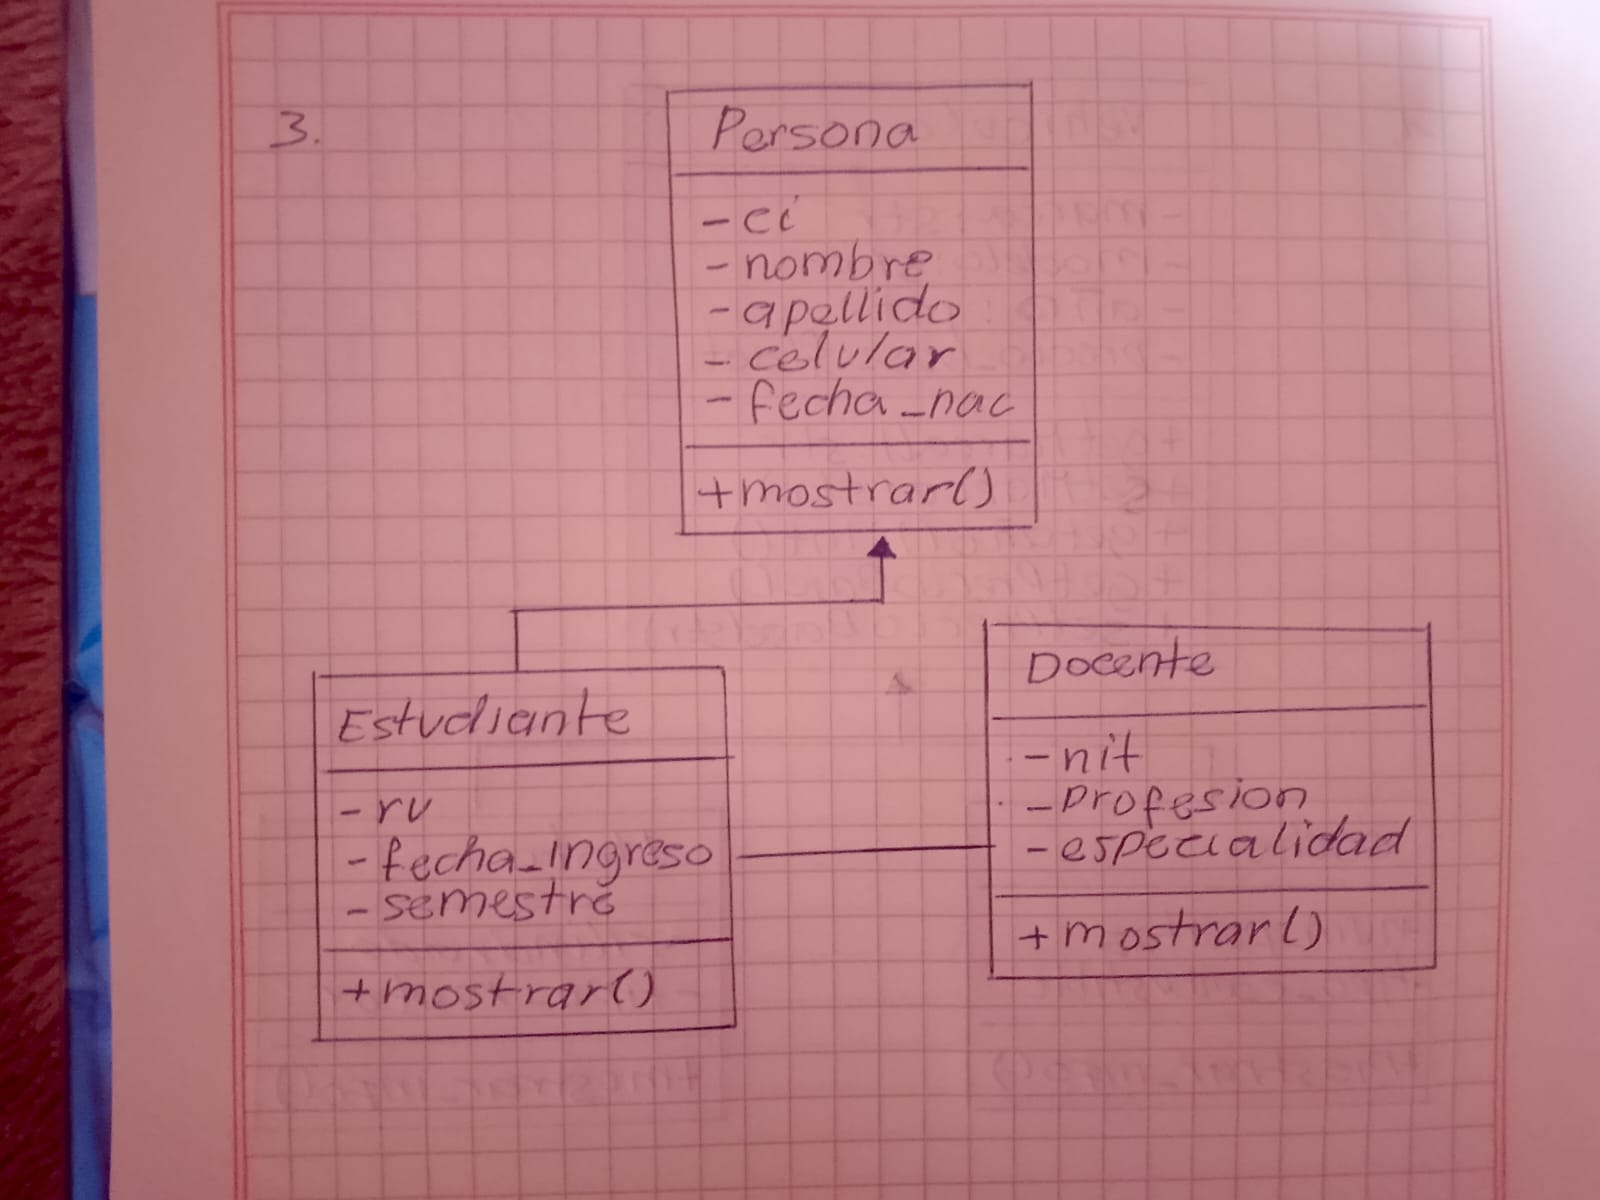 3.
Persona
- ci
- nombre
- apellido
- celular
- fecha_nac
+mostrar()
Estudiante
- ru
- fecha_ingreso
- semestre
+mostrar()
Docente
- nit
- profesion
- especialidad
+ mostrar()